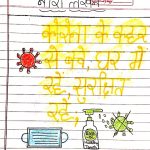 नारा लेखन
कोरोना के कहर
से बचे, घर में
रहें, सुरक्षित
रहें,